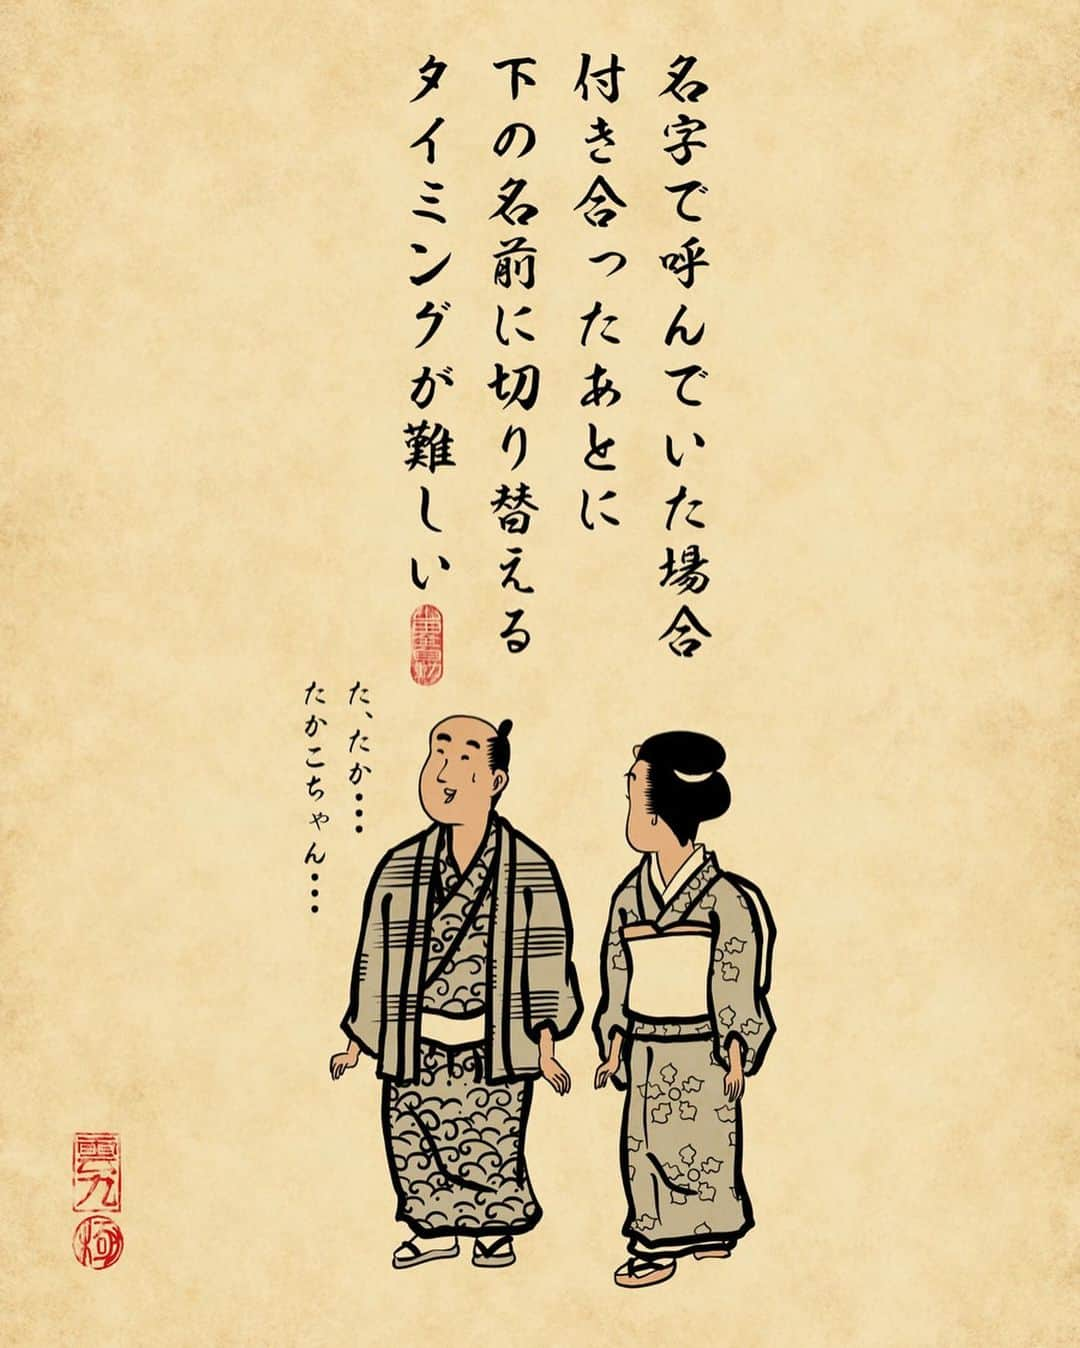 名字で呼んでいた場合
付き合ったあとに
下の名前に切り替える
タイミングが難しい
た、たか・・・
たかこちゃん・・・